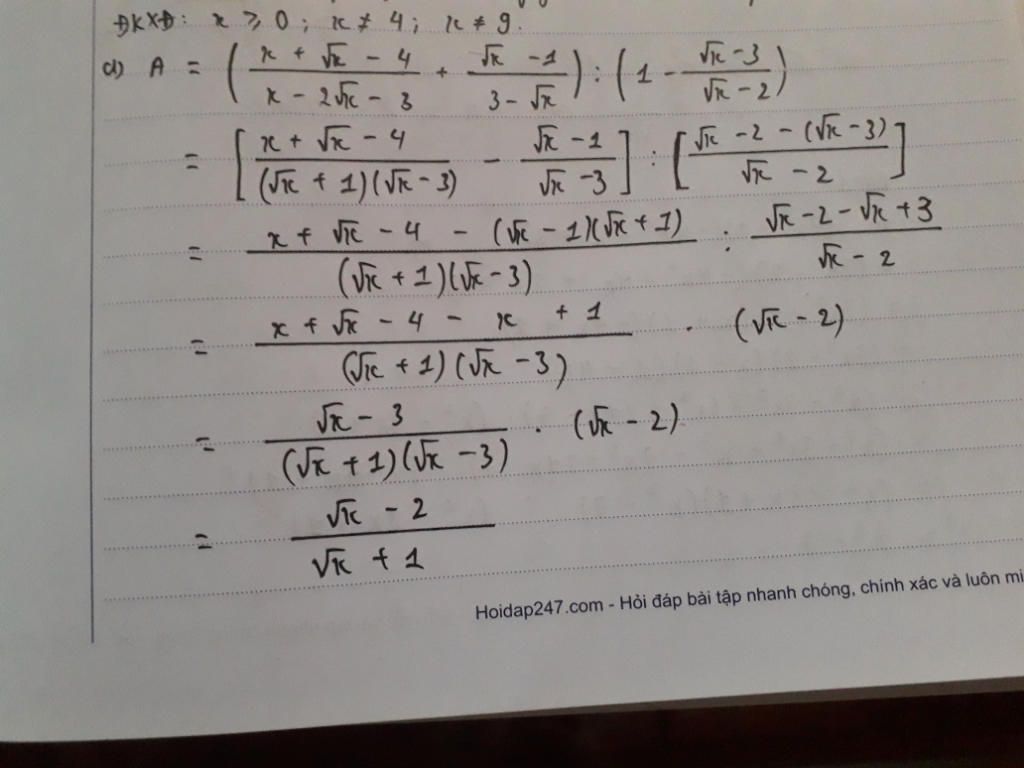 ĐKXĐ: x ≥ 0 ; x ≠ 4 ; x ≠ 9.
a) A = ( (x + √x - 4)/(x - 2√x - 3) + (√x - 1)/(3 - √x) ) : ( 1 - (√x - 3)/(√x - 2) )
= [ (x + √x - 4)/((√x + 1)(√x - 3)) - (√x - 1)/(√x - 3) ] : [ (√x - 2 - (√x - 3))/(√x - 2) ]
= (x + √x - 4 - (√x - 1)(√x + 1))/((√x + 1)(√x - 3)) : (√x - 2 - √x + 3)/(√x - 2)
= (x + √x - 4 - x + 1)/((√x + 1)(√x - 3)) . (√x - 2)
= (√x - 3)/((√x + 1)(√x - 3)) . (√x - 2)
= (√x - 2)/(√x + 1)
Hoidap247.com - Hỏi đáp bài tập nhanh chóng, chính xác và luôn mi